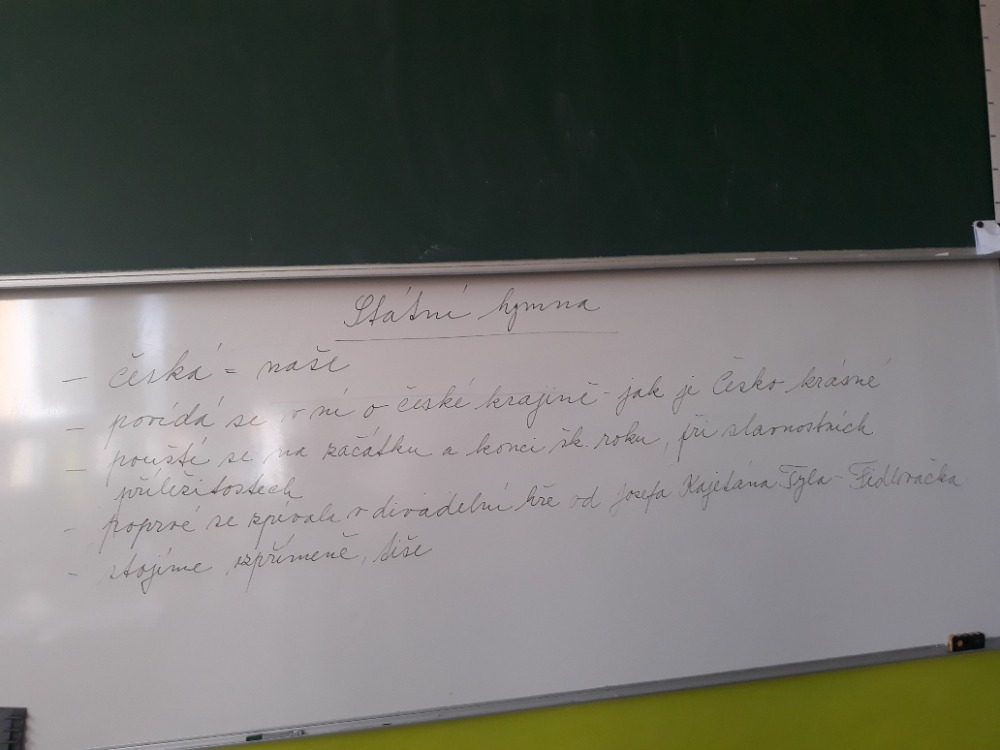 Státní hymna
- česká = naše
- povídá se v ní o české krajině - jak je Česko krásné
- pouští se na začátku a konci šk. roku, při slavnostních
příležitostech
- poprvé se zpívala v divadelní hře od Josefa Kajetána Tyla - Fidlovačka
- stojíme vzpřímeně, tiše